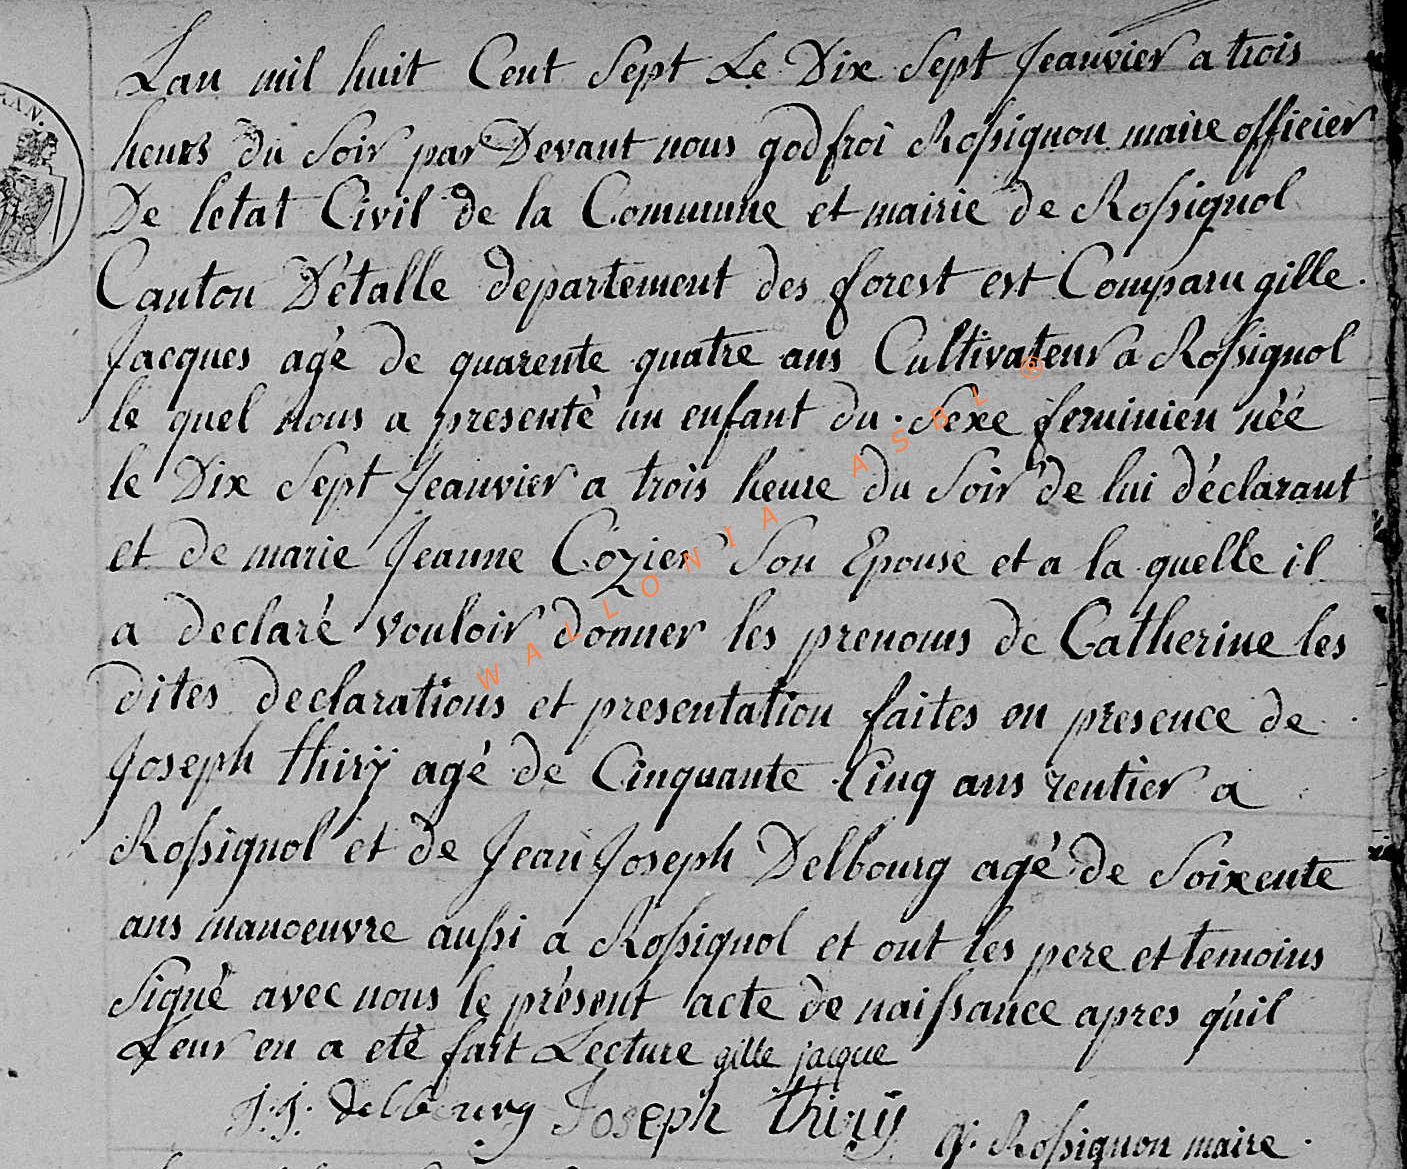 Lan mil huit Cent Sept Le Dix Sept Jeanvier a trois
heurs du Soir par Devant nous godfroi Rossignon maire officier
De letat Civil de la Commune et mairie de Rossignol
Canton D'étalle departement des forest est Comparu gille
Jacques agé de quarente quatre ans Cultivateur a Rossignol
le quel nous a presenté un enfant du Sexe feminien néé
le Dix Sept Jeanvier a trois heure du Soir de lui déclarant
et de marie Jeanne Cozier Son Epouse et a la quelle il
a declaré vouloir donner les prenoms de Catherine les
dites declarations et presentation faites en presence de
Joseph thirÿ agé de Cinquante Cinq ans rentier a
Rossignol et de Jean Joseph Delbourg agé de Soixente
ans manoeuvre aussi a Rossignol et ont les pere et temoins
Signé avec nous le présent acte de naissance apres qu'il
Leur en a eté fait Lecture gille jacque
J:J: delbourg Joseph thirÿ g: Rossignon maire
WALLONIA ASBL ®
RAN.